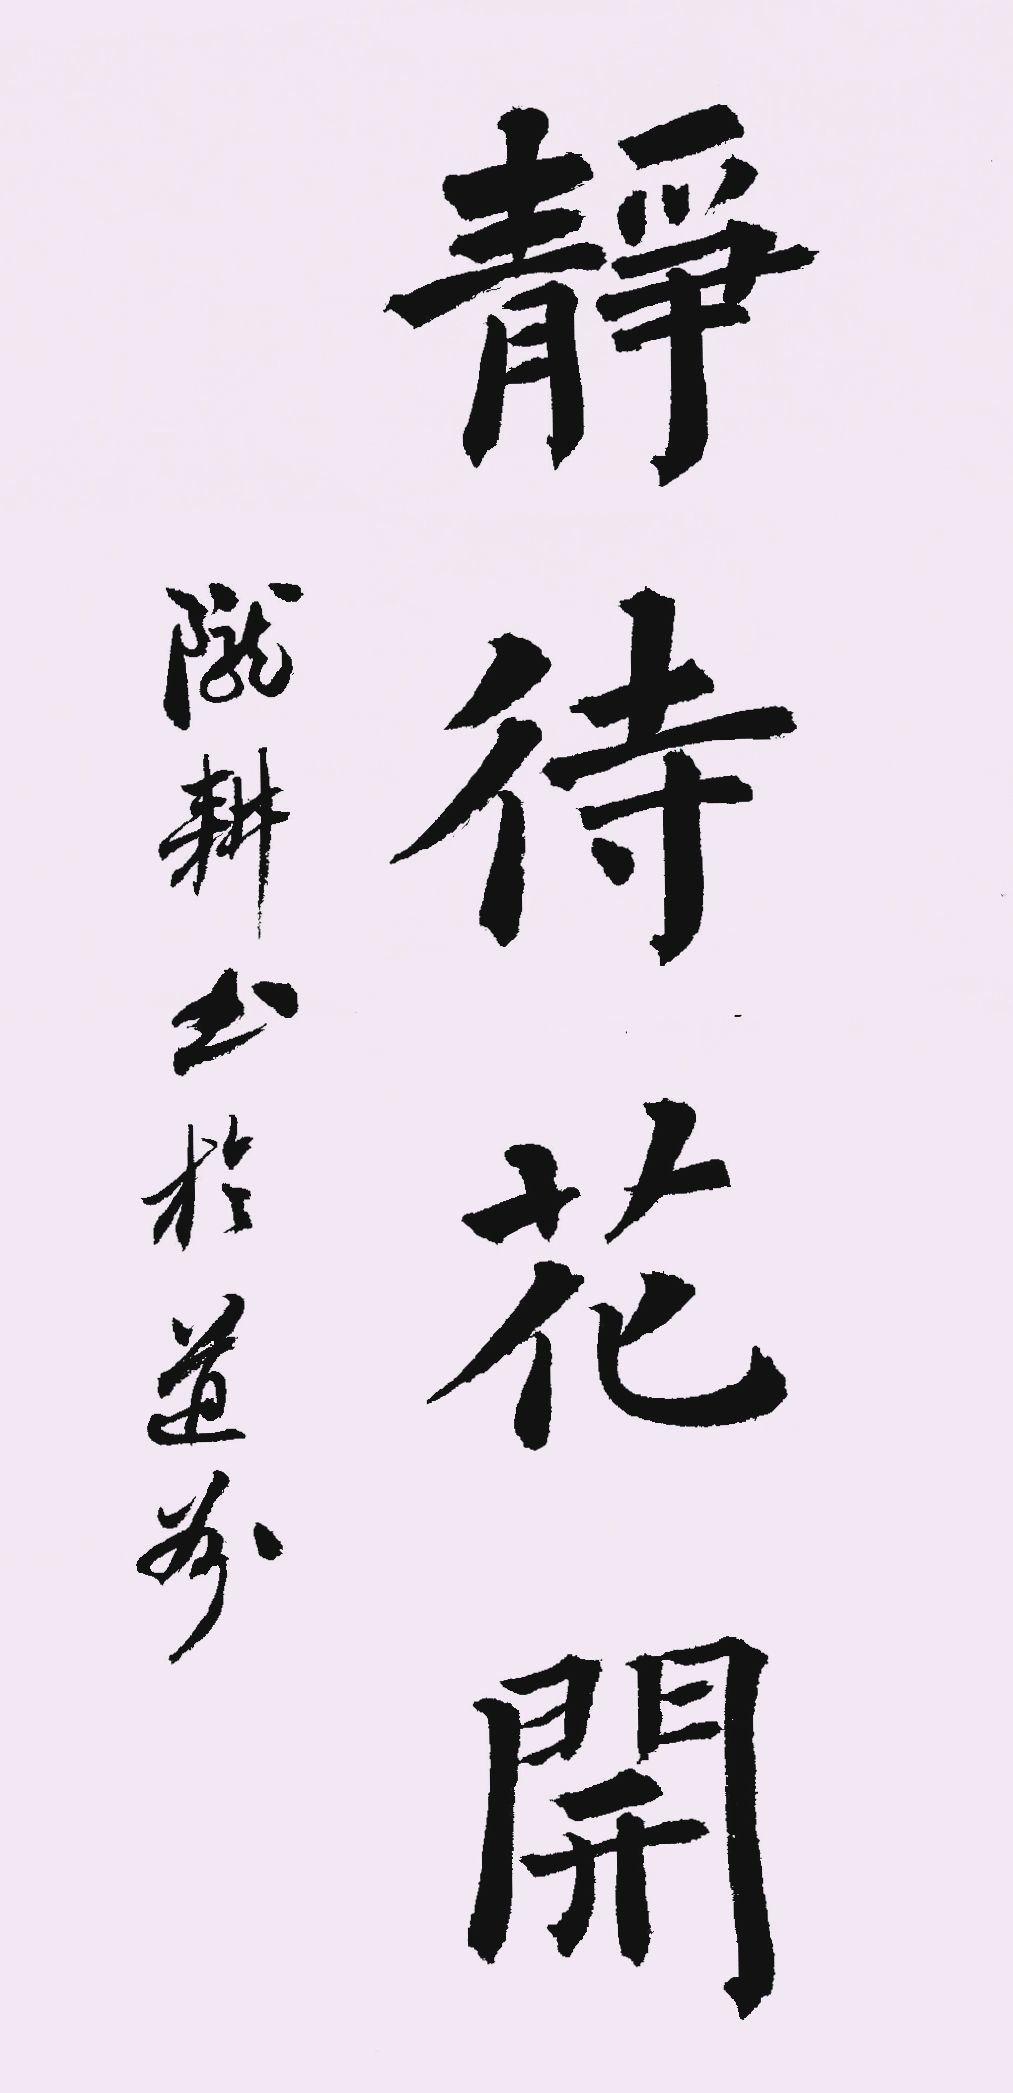 靜待花開
隴耕书於道州